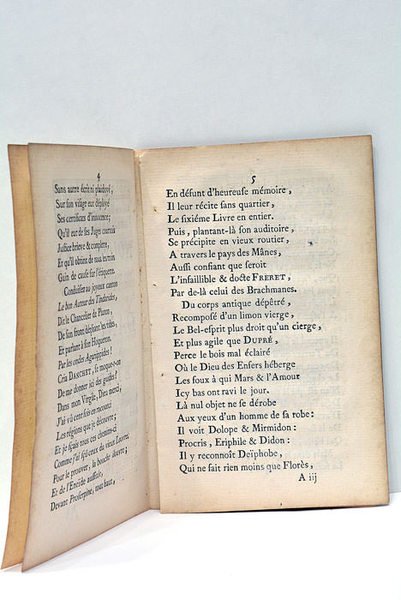 4
Sans autre écrit ni plaidoyé,
Sur son visage est déployé
Ses certificats d'innocence;
Qu'il eut de ses Juges
Justice brieve & complete,
Et qu'il obtint de tous
Gain de cause sur l'étiquete.
Condisciple au joyeux
Le bon Auteur des
Dit le Chancelier de
De son front
Et partant à son
Par les ondes Aganippides!
Cria DANCHET, se moque-t-on
De me donner ici des guides?
Dans mon Virgile, Dieu merci,
J'ai vû cent fois en
Les régions que je découvre;
Et je sçais tous ces chemins-ci
Comme j'ai sçû ceux du vieux Louvre.
Pour le prouver, la bouche ouverte;
Et de l'Enéide aussi-tôt,
Devant Proserpine, tout haut,
5
En défunt d'heureuse mémoire,
Il leur récite sans quartier,
Le sixiéme Livre en entier.
Puis, plantant-là son auditoire,
Se précipite en vieux routier,
A travers le pays des Mânes,
Aussi confiant que seroit
L'infaillible & docte FRERET,
Par de-là celui des Brachmanes.
Du corps antique dépêtré,
Recomposé d'un limon vierge,
Le Bel-esprit plus droit qu'un cierge,
Et plus agile que DUPRÉ,
Perce le bois mal éclairé
Où le Dieu des Enfers héberge
Les foux à qui Mars & l'Amour
Icy bas ont ravi le jour.
Là nul objet ne se dérobe
Aux yeux d'un homme de sa robe:
Il voit Dolope & Mirmidon:
Procris, Eriphile & Didon:
Il y reconnoît Deïphobe,
Qui ne fait rien moins que Florès,
A iij